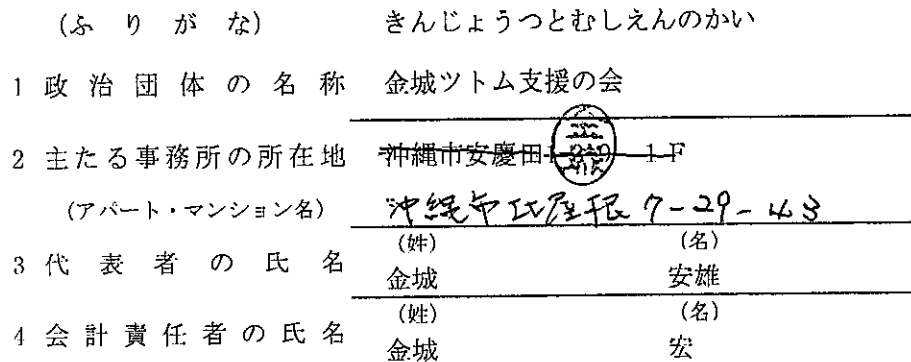 (ふりがな) きんじょうつとむしえんのかい
1 政治団体の名称 金城ツトム支援の会
2 主たる事務所の所在地 沖縄市安慶田 1F
(アパート・マンション名) 沖縄市比屋根 7-29-43
(姓) (名)
3 代表者の氏名 金城 安雄
(姓) (名)
4 会計責任者の氏名 金城 宏